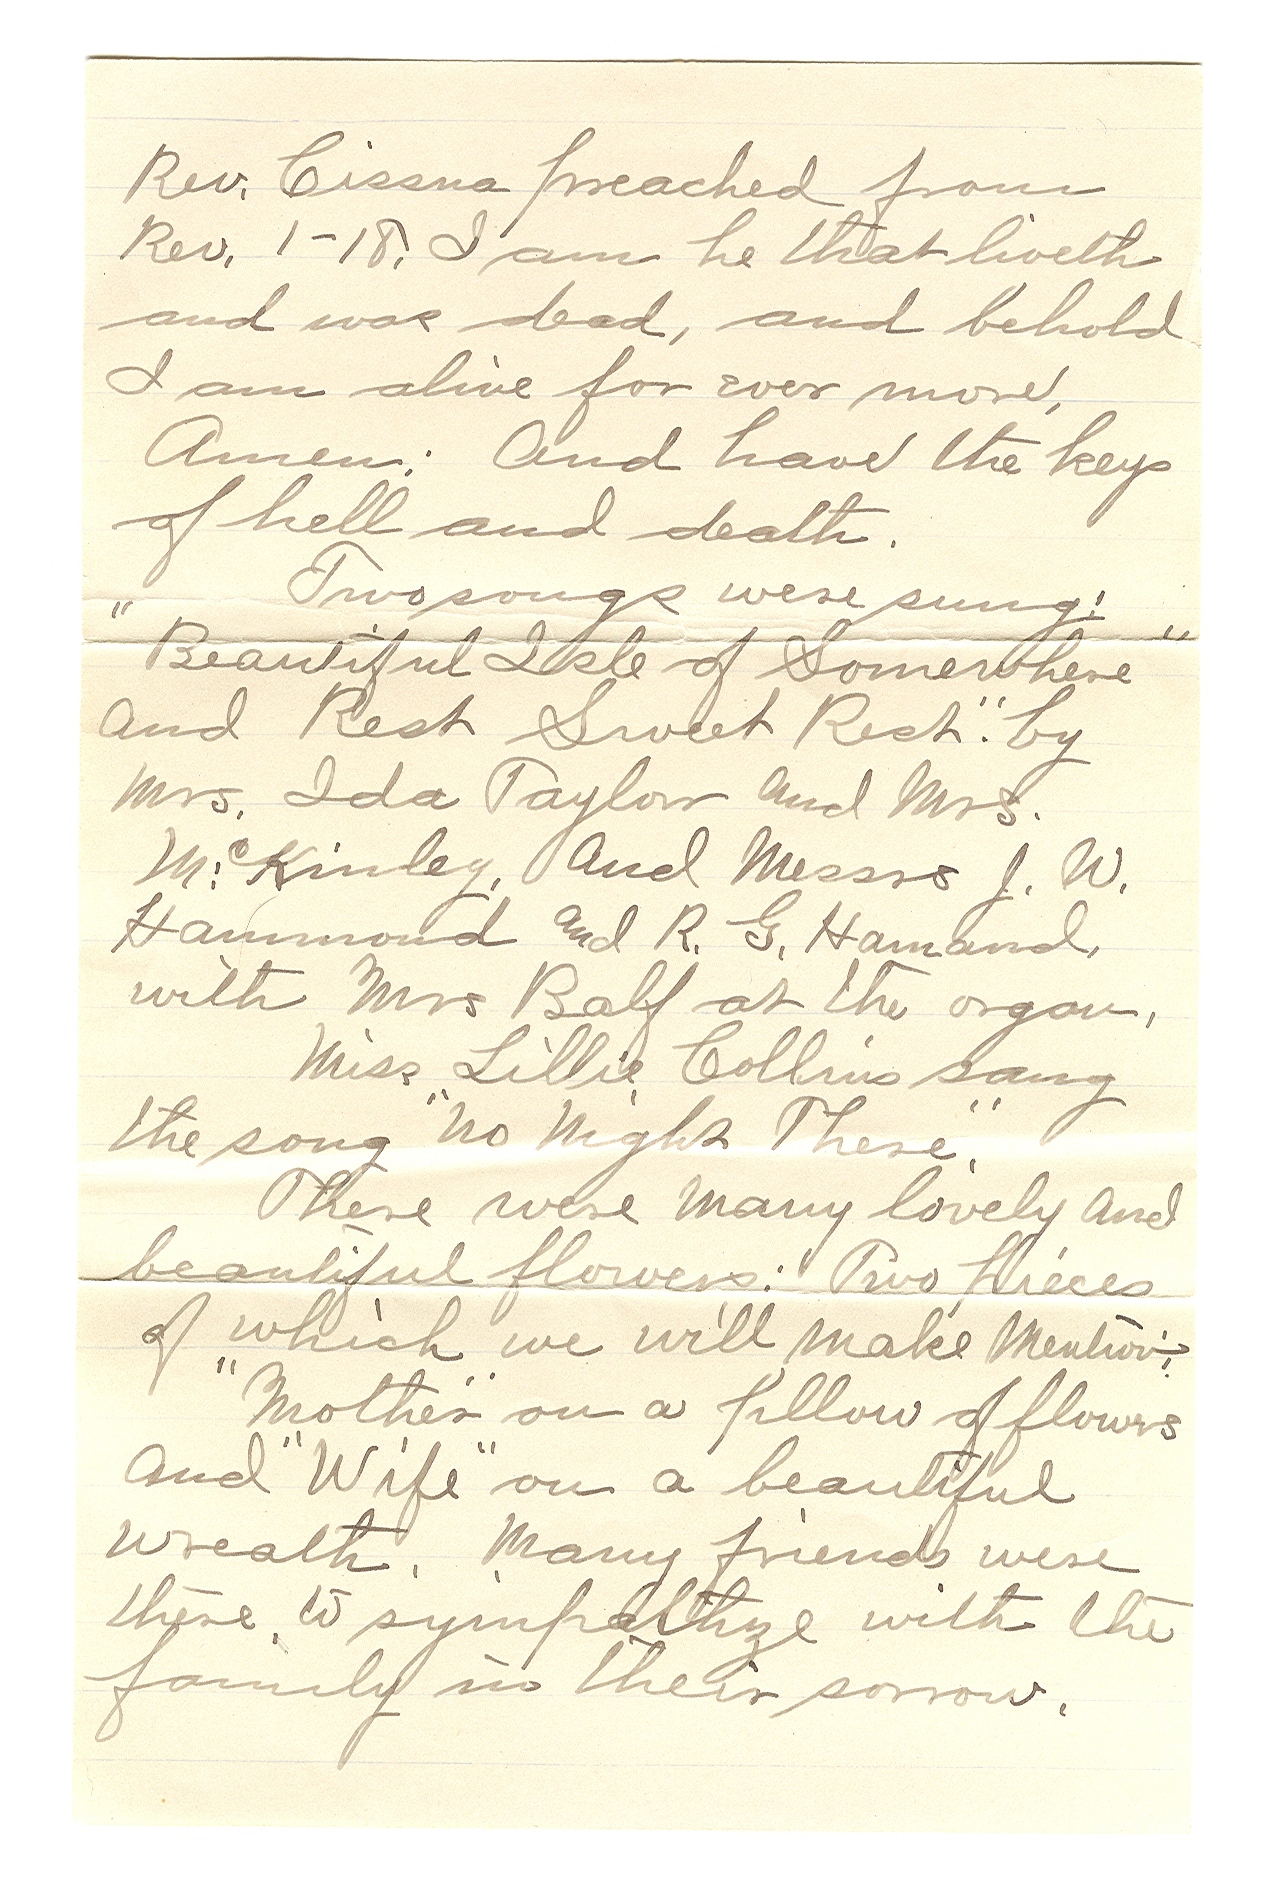 Rev. Cissna preached from
Rev. 1-18. I am he that liveth
and was dead, and behold
I am alive for ever more,
Amen; And have the keys
of hell and death.
Two songs were sung:
"Beautiful Isle of Somewhere"
and Rest Sweet Rest". by
Mrs. Ida Taylor and Mrs.
McKinley, and Messrs J. W.
Hammond and R. G. Hamand,
with Mrs Balf at the organ,
Miss Lillie Collins sang
the song "No Night There".
There were many lovely and
beautiful flowers: Two pieces
of which we will make mention:
"Mother" on a pillow of flowers
and "Wife" on a beautiful
wreath. Many friends were
there, to sympathize with the
family in their sorrow.